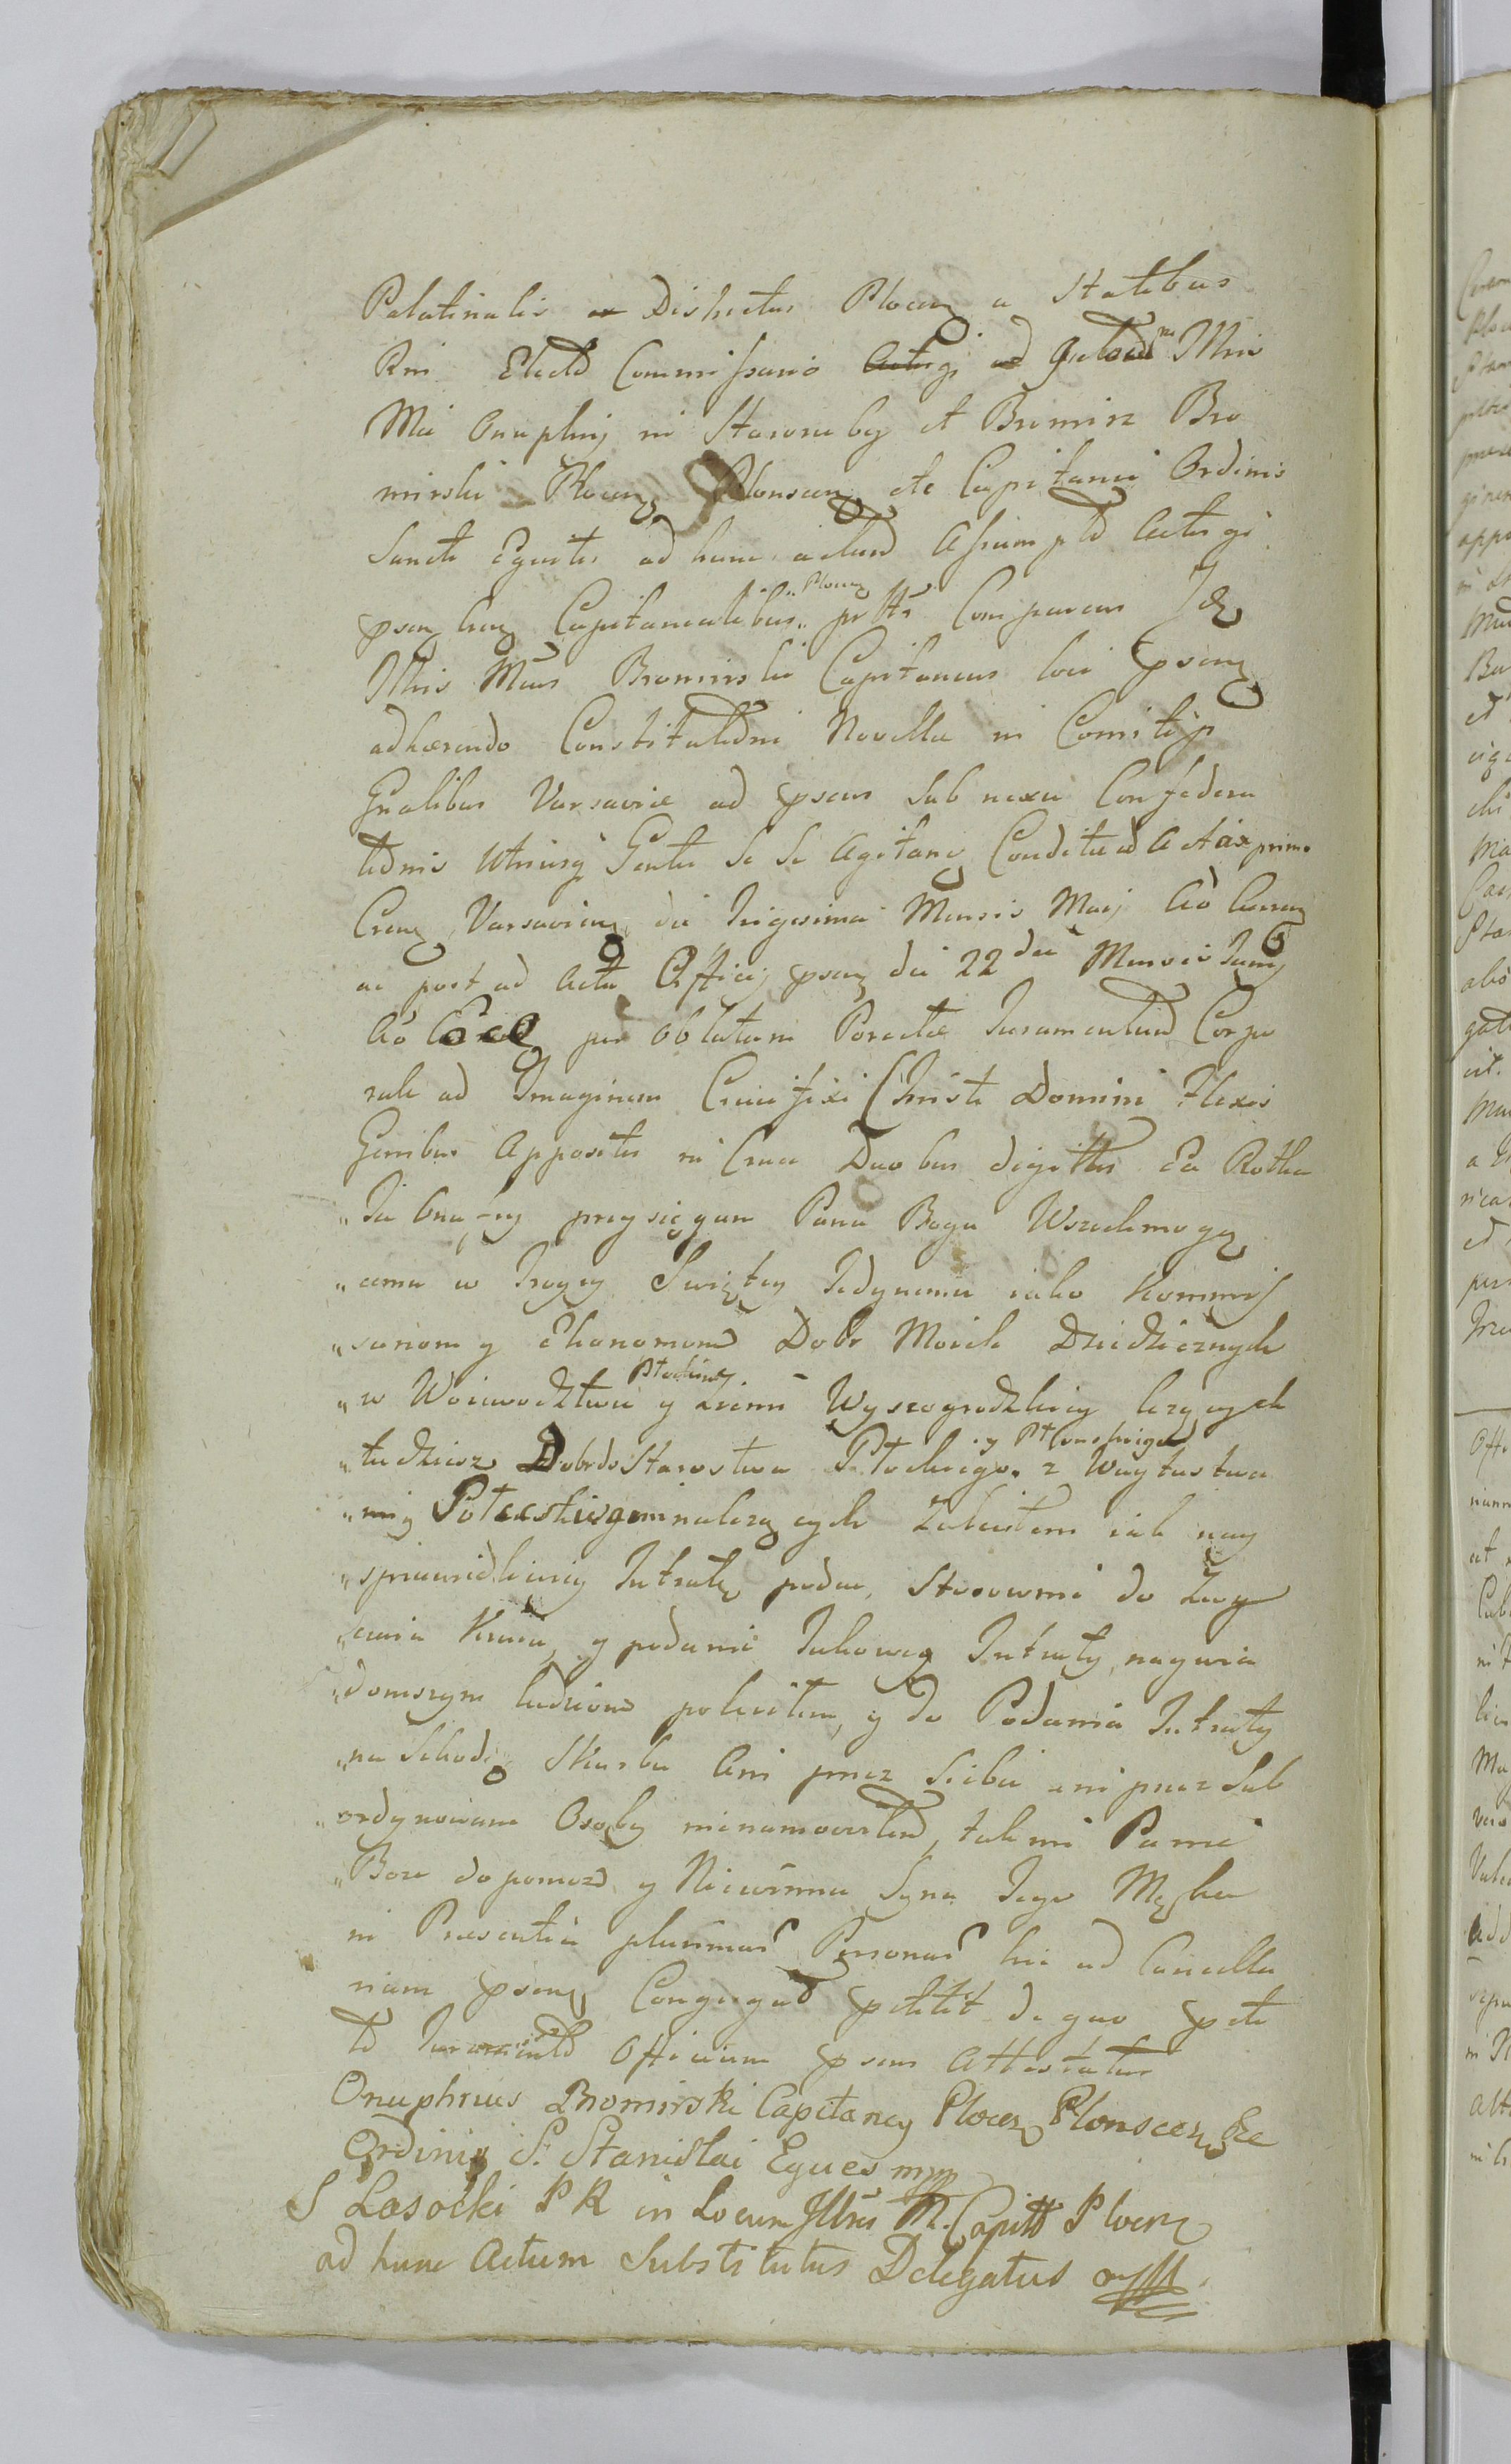 Palatinalis ac Districtus Plocen a Statibus
Rni Electo Commissario Actisq ad Illris
Mci Onuphrij in Staroreby et Bromirz Bro
mirski Plocen Plonscen etc Capitanei Ordinis
Sancti Equitis ad hunc actum Assumpto Actisq
psen huq Capitanealibus Plocen prtti Comparens Idem
Illris Mcus Bromirski Capitaneus loci psens
adhærendo Constitutioni Novellæ in Comitijs
Gnalibus Varsaviæ ad psens sub nexu Confædera
tionis Utriusq Gentis se se Agitan Conditæ ad Acta primo
Cren Varsavien die Trigesima Mensis Maij Aõ Curren
ac post ad Acta Officij psen die 22da Mensis Junij
Aõ Eod per Oblatam Porrectæ Juramentum Corpo
rale ad Imaginem Crucifixi Christi Domini Flexis
Genibus Appositis in Cruce Duobus digittis Ea Rotha
„Ja Onufry przysięgam Panu Bogu Wszechmogą
„cemu w Troycy Swiętey Jedynemu iako Kommis
„sarzom y Ekonomom Dobr Moich Dziedzicznych
„w Woiewodztwie Płockim y Ziemi Wyszogrodzkiey leżących
„tudziesz Dobrdo Starostwa Płockiego y Płonskiego z Woytostwa
„mi należących Zaleciłem iak nay
„sprawiedliwiey Intratę podać, Stosownie do Zarę
„czenia Kraiu, y podanie Takowey Intraty, naywia
„domszym ludziom poleciłem, y do Podania Intraty
„na Szkodę Skarbu Ani przez Siebie ani przez Sub
„ordynowane Osoby nienamowiłem, tak mi Panie
„Boże dopomoż y Niewinna Syna Jego Męka
in Præsentia plurimar Personar hic ad Cancella
riam psen Congregat pstitit de quo psti
to Juramento Officium psens Attestatur
Onuphrius Bromirski Capitaney Plocen Plonscen &c
Ordinis S. Stanislai Eques mpp
S Lasocki P R in Locum Illris M. Capitt Plocen
ad hunc Actum Substitutus Delegatus mpp